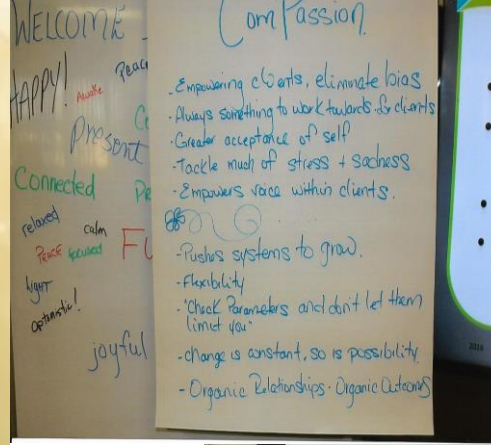 WELCOME -
HAPPY!
Peace
Awake
Present
Connected
relaxed
calm
Peace
focused
light
optimistic!
joyful
ComPassion
- Empowering clients, eliminate bias
- Always something to work towards for clients
- Greater acceptance of self
- Tackle much of stress + sadness
- Empowers voice within clients.
- Pushes systems to grow.
- Flexibility
- "Check Parameters and don't let them
limit you"
- change is constant, so is possibility
- Organic Relationships - Organic Outcomes
2018